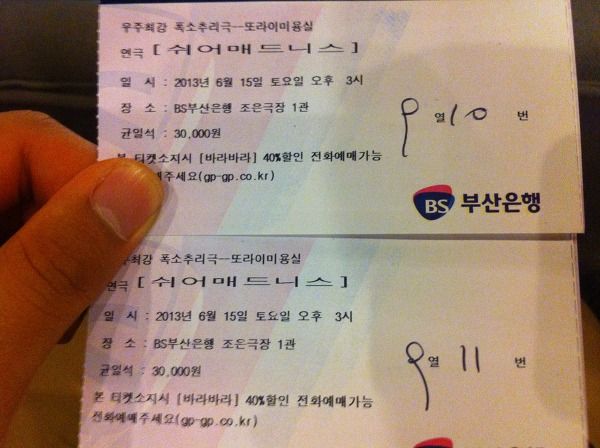 우주최강 폭소추리극--또라이미용실
연극 [ 쉬어매드니스 ]
일 시 : 2013년 6월 15일 토요일 오후 3시
장 소 : BS부산은행 조은극장 1관
균일석 : 30,000원
9 열 10 번
본 티켓소지시 [바라바라] 40%할인 전화예매가능
매주세요(gp-gp.co.kr)
BS 부산은행
최강 폭소추리극--또라이미용실
연극 [ 쉬어매드니스 ]
일 시 : 2013년 6월 15일 토요일 오후 3시
장 소 : BS부산은행 조은극장 1관
균일석 : 30,000원
9 열 11 번
본 티켓소지시 [바라바라] 40%할인 전화예매가능
전화예매주세요(gp-gp.co.kr)